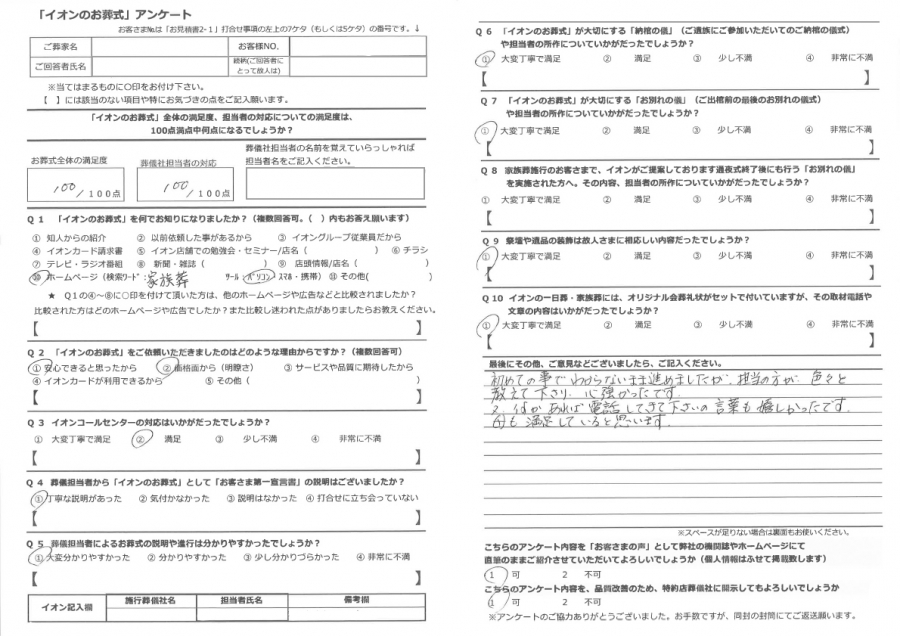 「イオンのお葬式」アンケート
お客さま№は「お見積書2-1」打合せ事項の左上の7ケタ（もしくは5ケタ）の番号です。↓
ご葬家名 お客様NO.
ご回答者氏名 続柄(ご回答者にとって故人は)
※当てはまるものに○印をお付け下さい。
【　】には該当のない項目や特にお気づきの点をご記入願います。
「イオンのお葬式」全体の満足度、担当者の対応についての満足度は、
100点満点中何点になるでしょうか？
お葬式全体の満足度
100 /100点
葬儀社担当者の対応
100 /100点
葬儀社担当者の名前を覚えていらっしゃれば
担当者名をご記入ください。
Q１ 「イオンのお葬式」を何でお知りになりましたか？（複数回答可。（　）内もお答え願います）
① 知人からの紹介 ② 以前依頼した事があるから ③ イオングループ従業員だから
④ イオンカード請求書 ⑤ イオン店舗での勉強会・セミナー/店名（　） ⑥ チラシ
⑦ テレビ・ラジオ番組 ⑧ 新聞・雑誌（　） ⑨ 店頭情報/店名（　）
⑩ ホームページ（検索ワード：家族葬 ツール：パソコン スマホ・携帯） ⑪ その他(　)
★ Ｑ1の④～⑧に○印を付けて頂いた方は、他のホームページや広告などと比較されましたか？
比較された方はどのホームページや広告でしたか？また比較し迷われた点がありましたらお教えください。
【　】
Q２ 「イオンのお葬式」をご依頼いただきましたのはどのような理由からですか？（複数回答可）
① 安心できると思ったから ② 価格面から（明瞭さ） ③ サービスや品質に期待したから
④ イオンカードが利用できるから ⑤ その他（　）
【　】
Q３ イオンコールセンターの対応はいかがだったでしょうか？
① 大変丁寧で満足 ② 満足 ③ 少し不満 ④ 非常に不満
【　】
Q４ 葬儀担当者から「イオンのお葬式」として「お客さま第一宣言書」の説明はございましたか？
① 丁寧な説明があった ② 気付かなかった ③ 説明はなかった ④ 打合せに立ち会っていない
【　】
Q５ 葬儀担当者によるお葬式の説明や進行は分かりやすかったでしょうか？
① 大変分かりやすかった ② 分かりやすかった ③ 少し分かりづらかった ④ 非常に不満
【　】
イオン記入欄 施行葬儀社名 担当者氏名 備考欄
Q６ 「イオンのお葬式」が大切にする「納棺の儀」（ご遺族にご参加いただいてのご納棺の儀式）
や担当者の所作についていかがだったでしょうか？
① 大変丁寧で満足 ② 満足 ③ 少し不満 ④ 非常に不満
【　】
Q７ 「イオンのお葬式」が大切にする「お別れの儀」（ご出棺前の最後のお別れの儀式）
や担当者の所作についていかがだったでしょうか？
① 大変丁寧で満足 ② 満足 ③ 少し不満 ④ 非常に不満
【　】
Q８ 家族葬施行のお客さまで、イオンがご提案しております通夜式終了後にも行う「お別れの儀」
を実施された方へ。その内容、担当者の所作についていかがだったでしょうか？
① 大変丁寧で満足 ② 満足 ③ 少し不満 ④ 非常に不満
【　】
Q９ 祭壇や遺品の装飾は故人さまに相応しい内容だったでしょうか？
① 大変丁寧で満足 ② 満足 ③ 少し不満 ④ 非常に不満
【　】
Q10 イオンの一日葬・家族葬には、オリジナル会葬礼状がセットで付いていますが、その取材電話や
文章の内容はいかがだったでしょうか？
① 大変丁寧で満足 ② 満足 ③ 少し不満 ④ 非常に不満
【　】
最後にその他、ご意見などございましたら、ご記入ください。
初めての事でわからないまま進めましたが、担当の方が、色々と
教えて下さり、心強かったです。
又、何かあれば電話してきて下さいの言葉も嬉しかったです。
母も満足していると思います。
※スペースが足りない場合は裏面もお使いください。
こちらのアンケート内容を「お客さまの声」として弊社の機関誌やホームページにて
直筆のままご紹介させていただいてよろしいでしょうか（個人情報はふせて掲載致します）
1 可 2 不可
こちらのアンケート内容を、品質改善のため、特約店葬儀社に開示してもよろしいでしょうか
1 可 2 不可
※アンケートのご協力ありがとうございました。お手数ですが、同封の封筒にてご返送願います。